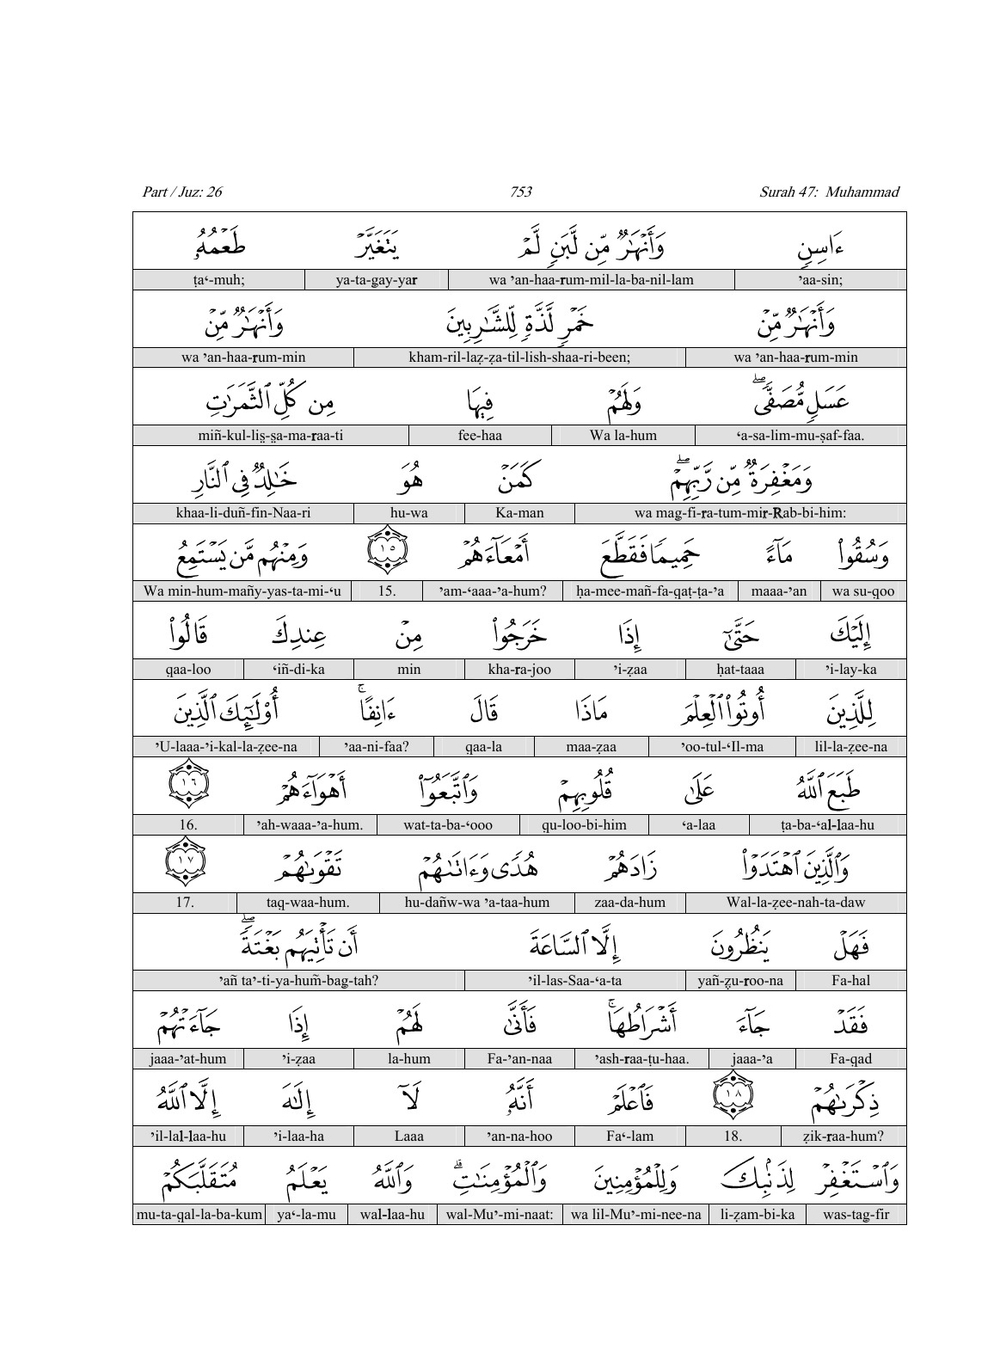 Part / Juz: 26 753 Surah 47: Muhammad
ءَاسِنٍ وَأَنْهَٰرٌ مِّن لَّبَنٍ لَّمْ يَتَغَيَّرْ طَعْمُهُۥ
ṭa‘-muh; ya-ta-gay-yar wa ’an-haa-rum-mil-la-ba-nil-lam ’aa-sin;
وَأَنْهَٰرٌ مِّنْ خَمْرٍ لَّذَّةٍ لِّلشَّٰرِبِينَ وَأَنْهَٰرٌ مِّنْ
wa ’an-haa-rum-min kham-ril-laẓ-ẓa-til-lish-shaa-ri-been; wa ’an-haa-rum-min
عَسَلٍ مُّصَفًّى ۖ وَلَهُمْ فِيهَا مِن كُلِّ ٱلثَّمَرَٰتِ
miñ-kul-liṣ-ṣa-ma-raa-ti fee-haa Wa la-hum ‘a-sa-lim-mu-ṣaf-faa.
وَمَغْفِرَةٌ مِّن رَّبِّهِمْ ۖ كَمَنْ هُوَ خَٰلِدٌ فِى ٱلنَّارِ
khaa-li-duñ-fin-Naa-ri hu-wa Ka-man wa mag-fi-ra-tum-mir-Rab-bi-him:
وَسُقُوا۟ مَآءً حَمِيمًا فَقَطَّعَ أَمْعَآءَهُمْ ١٥ وَمِنْهُم مَّن يَسْتَمِعُ
Wa min-hum-mañy-yas-ta-mi-‘u 15. ’am-‘aaa-’a-hum? ḥa-mee-mañ-fa-qaṭ-ṭa-‘a maaa-’an wa su-qoo
إِلَيْكَ حَتَّىٰٓ إِذَا خَرَجُوا۟ مِنْ عِندِكَ قَالُوا۟
qaa-loo ‘iñ-di-ka min kha-ra-joo ’i-ẓaa ḥat-taaa ’i-lay-ka
لِلَّذِينَ أُوتُوا۟ ٱلْعِلْمَ مَاذَا قَالَ ءَانِفًا ۚ أُو۟لَٰٓئِكَ ٱلَّذِينَ
’U-laaa-’i-kal-la-ẓee-na ’aa-ni-faa? qaa-la maa-ẓaa ’oo-tul-‘Il-ma lil-la-ẓee-na
طَبَعَ ٱللَّهُ عَلَىٰ قُلُوبِهِمْ وَٱتَّبَعُوٓا۟ أَهْوَآءَهُمْ ١٦
16. ’ah-waaa-’a-hum. wat-ta-ba-‘ooo qu-loo-bi-him ‘a-laa ṭa-ba-‘al-laa-hu
وَٱلَّذِينَ ٱهْتَدَوْا۟ زَادَهُمْ هُدًى وَءَاتَىٰهُمْ تَقْوَىٰهُمْ ١٧
17. taq-waa-hum. hu-dañw-wa ’a-taa-hum zaa-da-hum Wal-la-ẓee-nah-ta-daw
فَهَلْ يَنظُرُونَ إِلَّا ٱلسَّاعَةَ أَن تَأْتِيَهُم بَغْتَةً ۖ
’añ ta’-ti-ya-hum̃-bag-tah? ’il-las-Saa-‘a-ta yañ-ẓu-roo-na Fa-hal
فَقَدْ جَآءَ أَشْرَاطُهَا ۚ فَأَنَّىٰ لَهُمْ إِذَا جَآءَتْهُمْ
jaaa-’at-hum ’i-ẓaa la-hum Fa-’an-naa ’ash-raa-ṭu-haa. jaaa-’a Fa-qad
ذِكْرَىٰهُمْ ١٨ فَٱعْلَمْ أَنَّهُۥ لَآ إِلَٰهَ إِلَّا ٱللَّهُ
’il-lal-laa-hu ’i-laa-ha Laaa ’an-na-hoo Fa‘-lam 18. ẓik-raa-hum?
وَٱسْتَغْفِرْ لِذَنۢبِكَ وَلِلْمُؤْمِنِينَ وَٱلْمُؤْمِنَٰتِ ۗ وَٱللَّهُ يَعْلَمُ مُتَقَلَّبَكُمْ
mu-ta-qal-la-ba-kum ya‘-la-mu wal-laa-hu wal-Mu’-mi-naat: wa lil-Mu’-mi-nee-na li-ẓam-bi-ka was-tag-fir